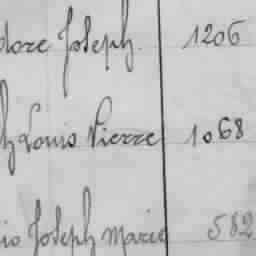 dore Joseph. 1206
h Louis Pierre 1068
io Joseph Marie 582